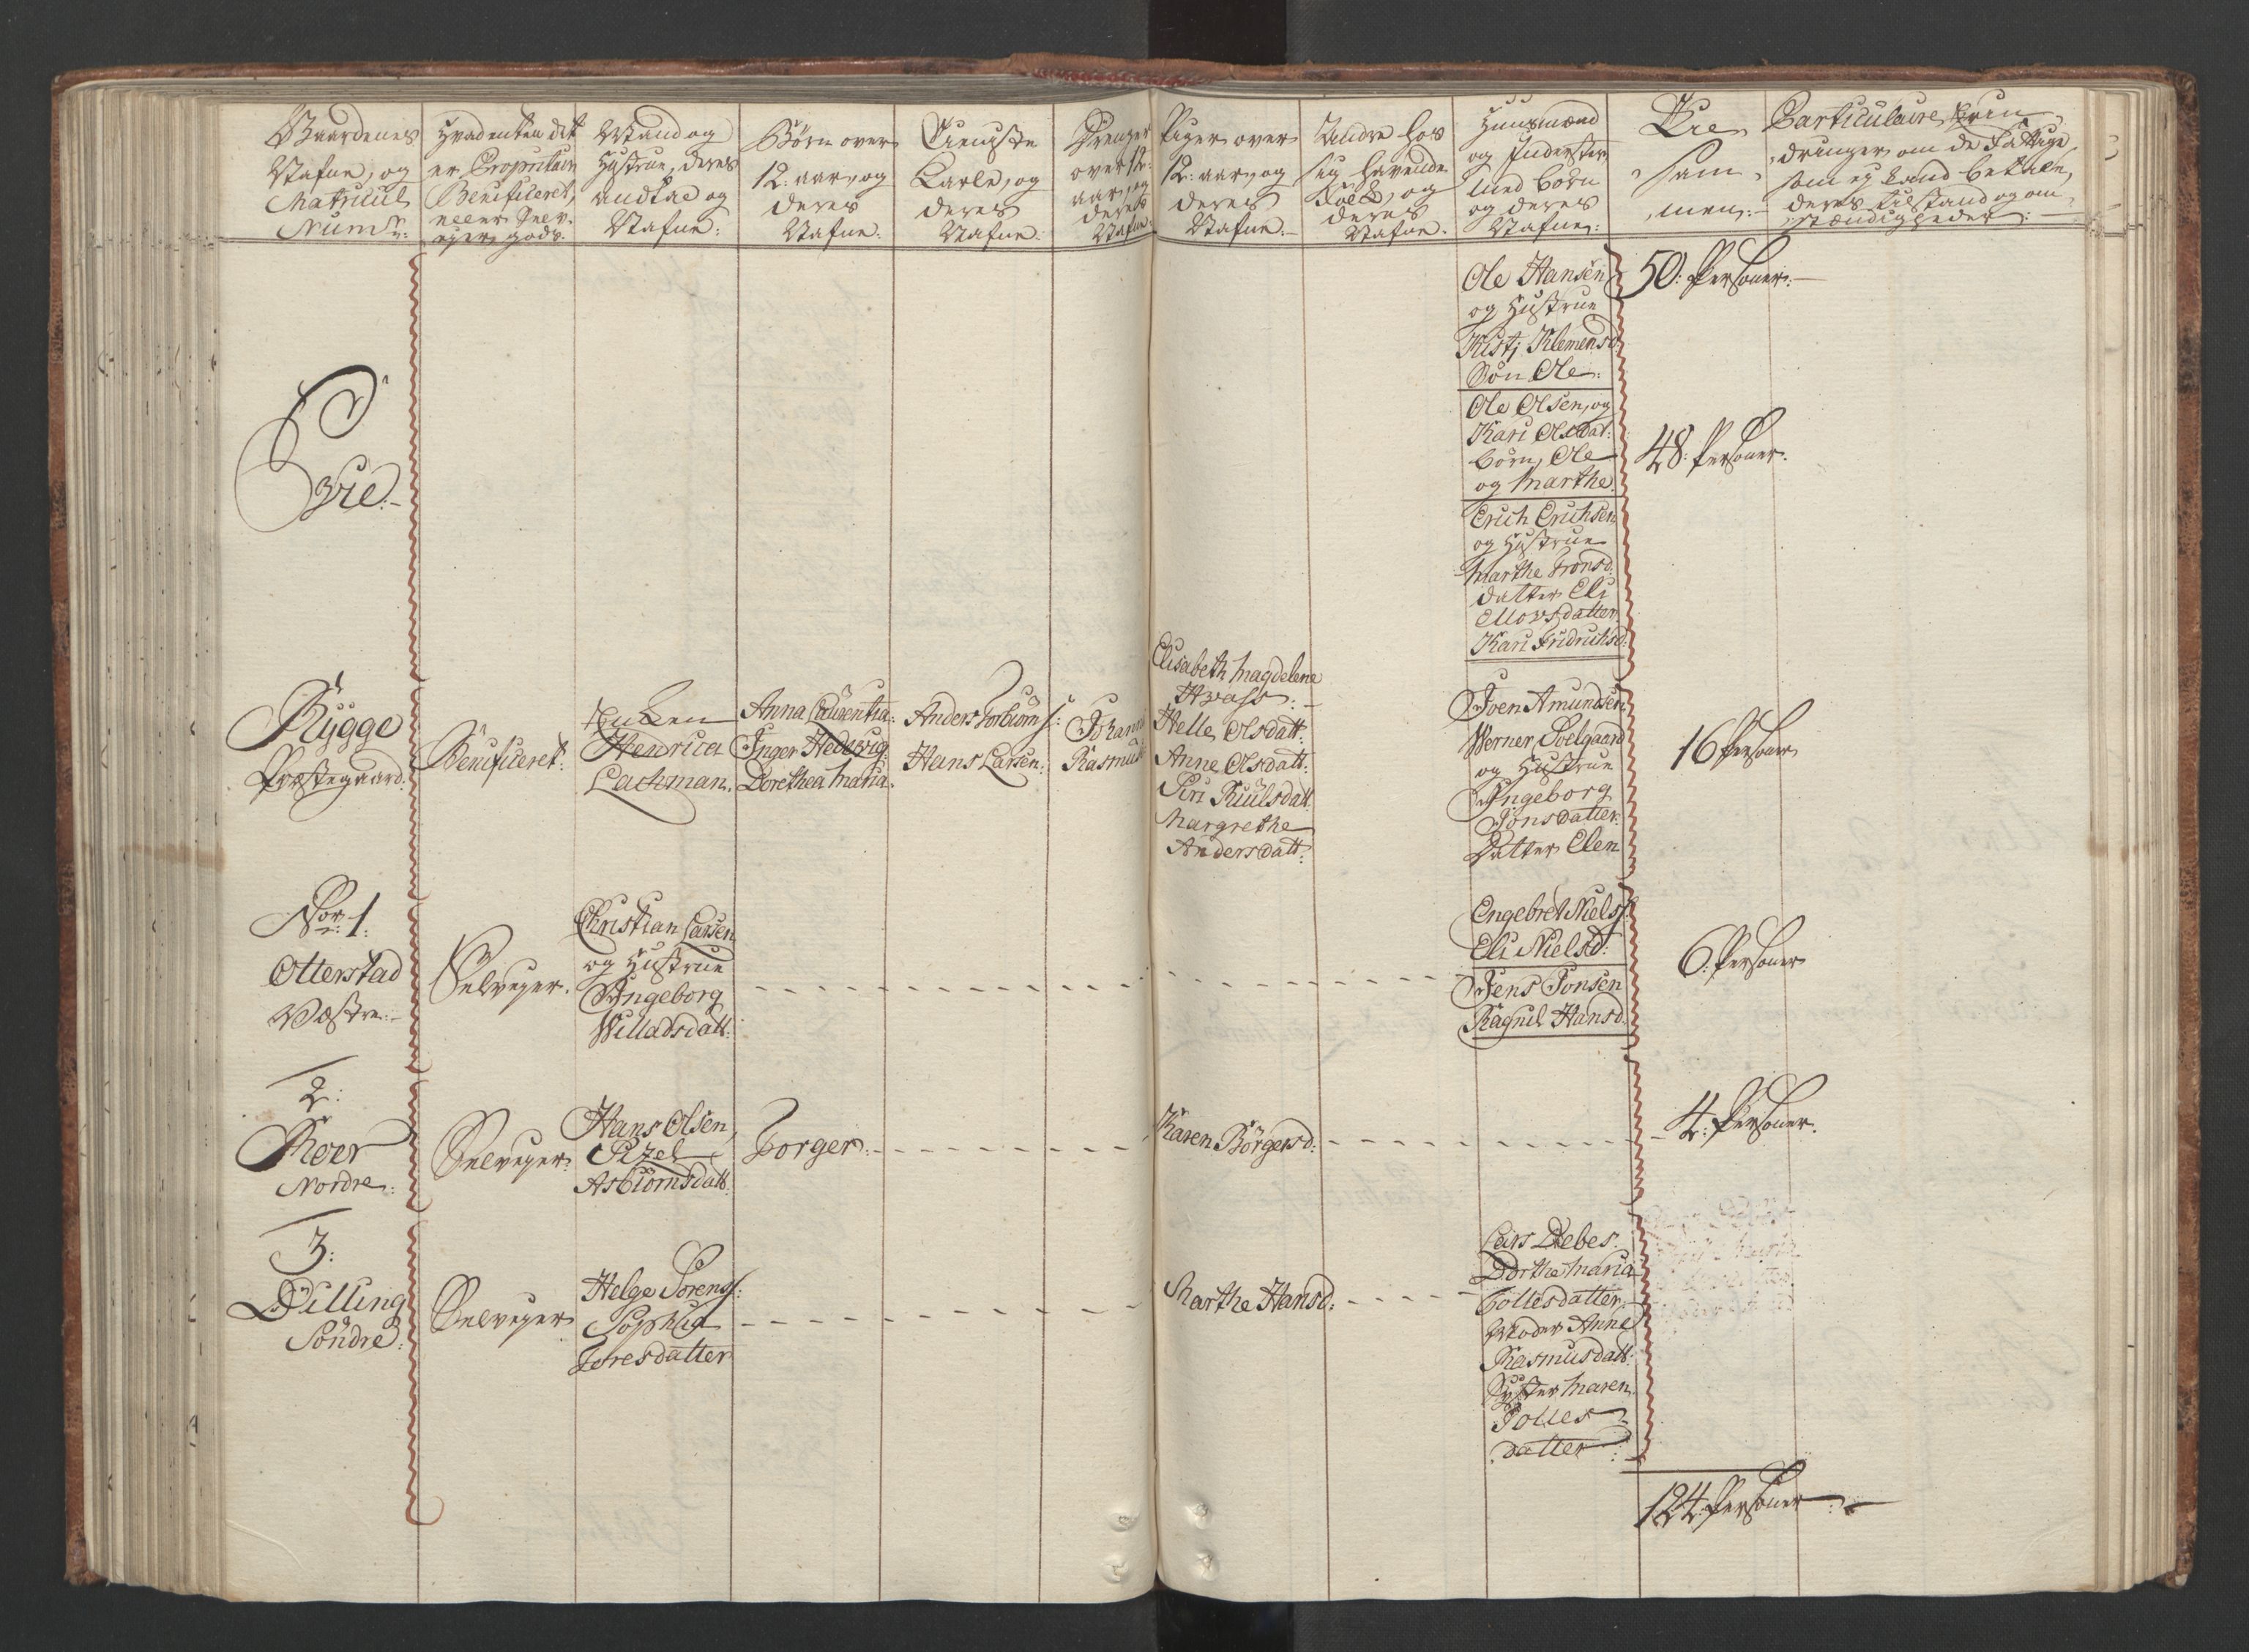 Gaardenes
Nafne, og
Matricul
Num̅r:
Hvad enten det
er Proprietair
Beneficeret,
eller Selv-
eyer gods.
Mand og
Hustrue, deres
andtal og
Nafne:
Børn over
12: aar, og
deres
Nafne:
Tienniste
Karle, og
deres
Nafne:
Drenger
over 12:
aar, og
deres
Nafne:
Piger over
12: aar, og
deres
Nafne:
Andre hos
sig havende
Folk, og
deres
Nafne:
Huusmænd
og Inderster
med børn
og deres
Nafne:
Tie
sam
men:
Particulaire Erin
dringer om de Fattige
som ej kand betale,
deres tilstand og om
stændigheder:
Ole Hansen
og Hustrue
Kistj Klemensd:
Søn Ole:
50: Persohner:
Ole Olsen, og
Kari Olsdat:
børn, Ole
og Marthe
48: Persohner.
Erich Erichsen
og Hustrue
Marthe Tronsd:
datter Eli
Ellovsdatter
Kari Fridrichsd:
Rygge
Præstegaard:
Beneficeret:
Enken
Hendrica
Lachman.
Anna Laurentia:
Inger Hedevig:
Dorethea Maria.
Anders Torbiørns:
Hans Larsen:
Johannes
Rasmus
Elisabeth Magdelene
Hvass:
Helle Olsdatt:
Anne Olsdatt:
Siri Riulsdatt
Margrethe
Andersdatt:
Joen Amundsen
Werner Soelgaard
og Hustrue
Ingeborg
Jonsdatter:
Datter Elen
16 Persohner
No: 1.
Otterstad
Westre:
Selveyer.
Christian Larsen
og Hustrue
Ingeborg
Willadsdatt:
Engebret Niels:
Eli Nielsd:
Jens Jonsen
Ragnil Hansd:
6: Persohner
2:
Roer
Nordre:
Selveyer:
Hans Olsen,
Sizel
Asbiørnsdatt:
Torger:
Karen Børgersd:
4: Persohner.
3:
Dilling
Søndre:
Selveyer
Helge Sørens:
Sophia
Toresdatter
Marthe Hansd:
Lars Debes:
Dorthe Maria
Tollesdatter
Moder Anne
Rasmusdatt:
Syster Maren
Tolles
datter:
124: Persohner: